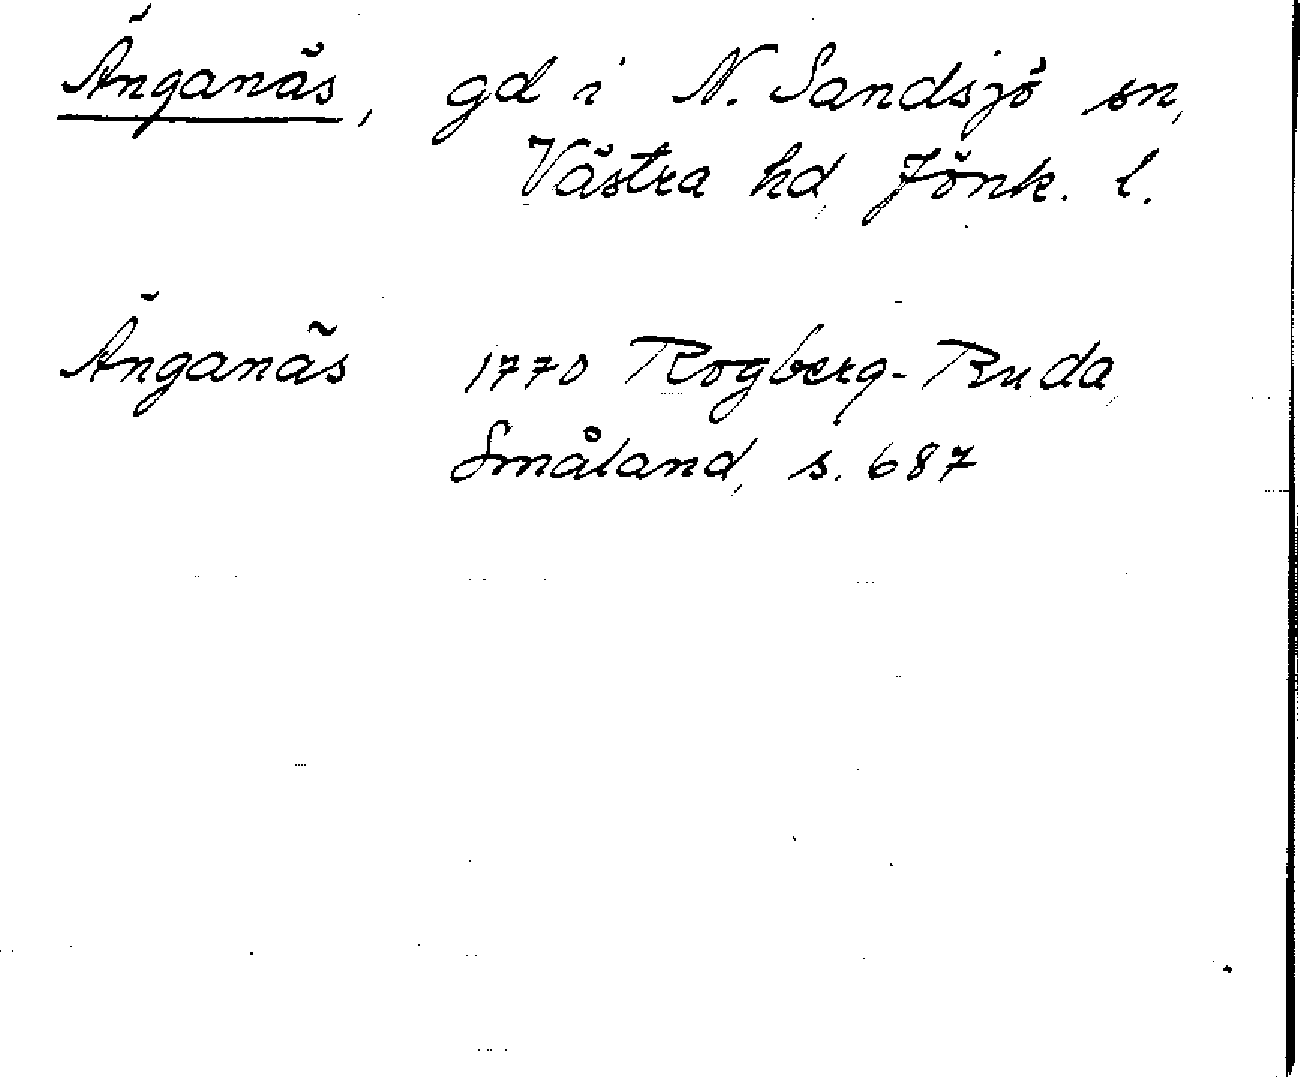 Änganäs, gd i N. Sandsjö sn,
Västra hd, Jönk. l.
Änganäs 1770 Rogberg-Ruda,
Småland, s. 687